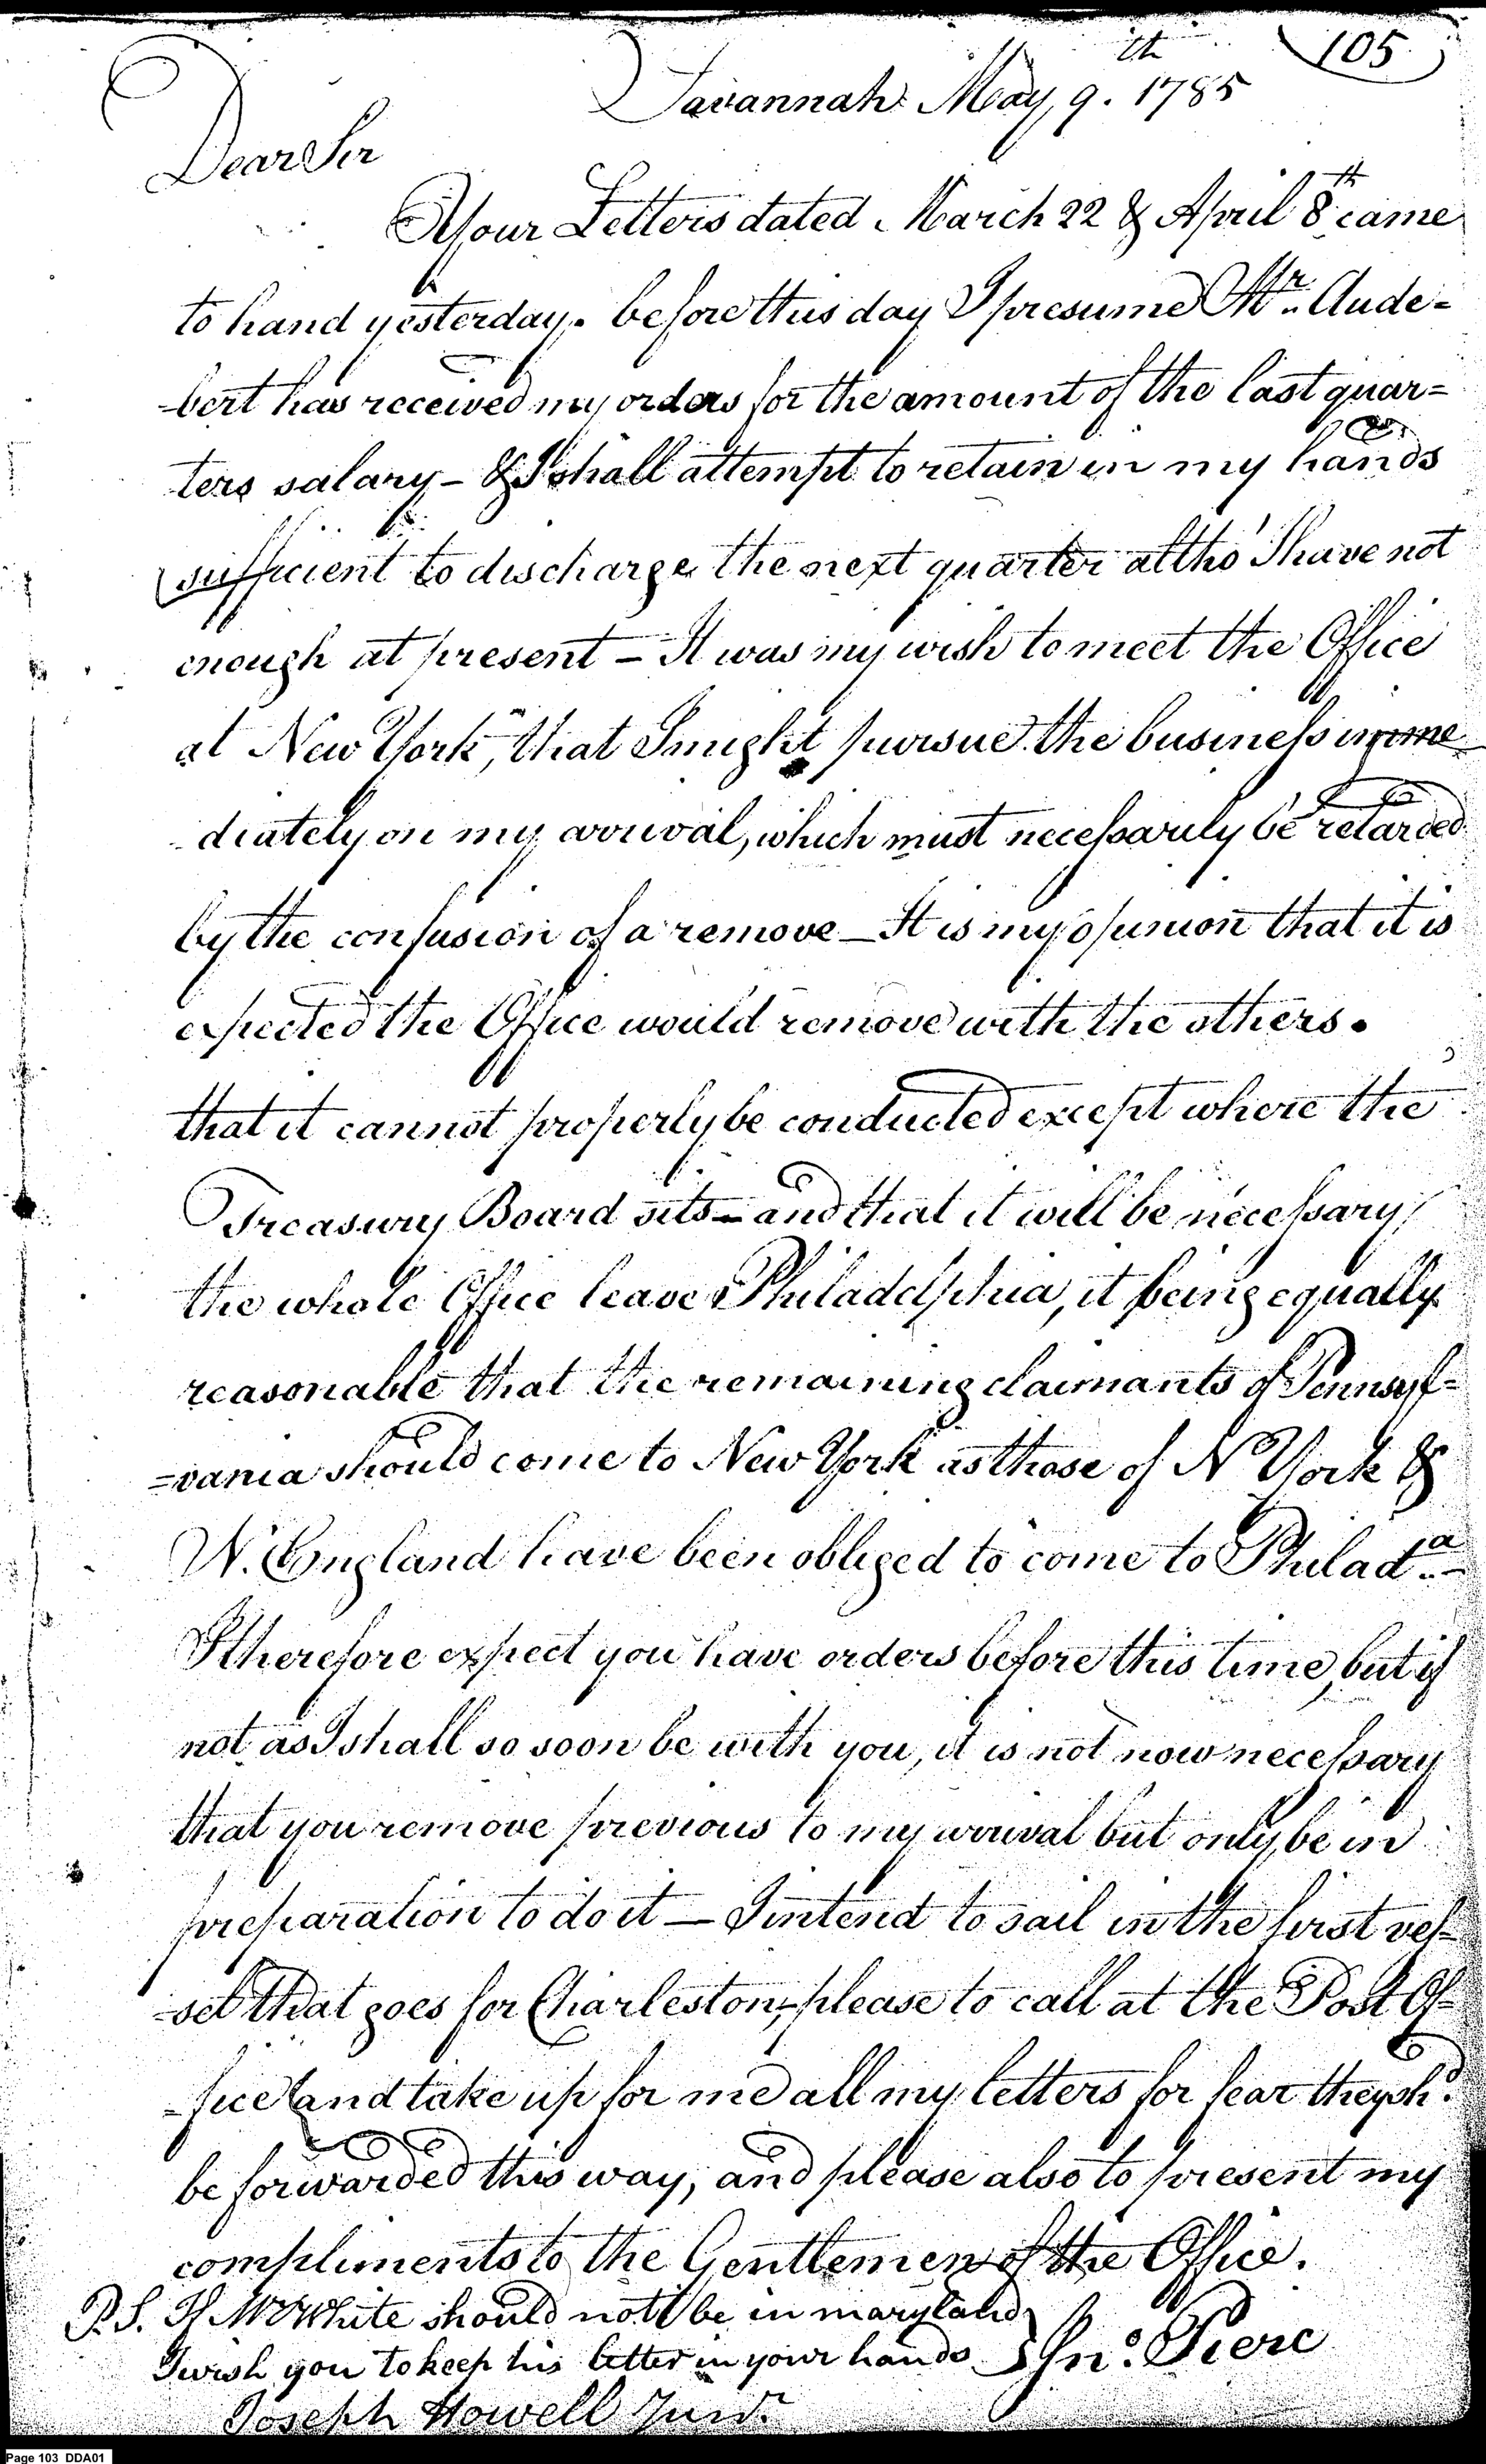 105
Savannah May 9.th 1785
Dear Sir
Your Letters dated March 22 & April 8th came
to hand yesterday. before this day I presume Mr. Aude-
-bert has received my orders for the amount of the last quar-
ters salary - & I shall attempt to retain in my hands
sufficient to discharge the next quarter altho' I have not
enough at present - It was my wish to meet the Office
at New York, that I might pursue the business imme
-diately on my arrival, which must necessarily be retarded
by the confusion of a remove - It is my opinion that it is
expected the Office would remove with the others.
that it cannot properly be conducted except where the
Treasury Board sits - and that it will be necessary
the whole Office leave Philadelphia, it being equally
reasonable that the remaining claimants of Pennsyl-
=vania should come to New York as those of N York &
N. England have been obliged to come to Philada. -
I therefore expect you have orders before this time, but if
not as I shall so soon be with you, it is not now necessary
that you remove previous to my arrival but only be in
preparation to do it - I intend to sail in the first ves-
-sel that goes for Charleston, please to call at the Post Of-
-fice and take up for me all my letters for fear they shd.
be forwarded this way, and please also to present my
compliments to the Gentlemen of the Office.
P.S. If Mr White should not be in maryland
I wish you to keep his letter in your hands
Jno. Pierc
Joseph Howell Junr.
Page 103 DDA01